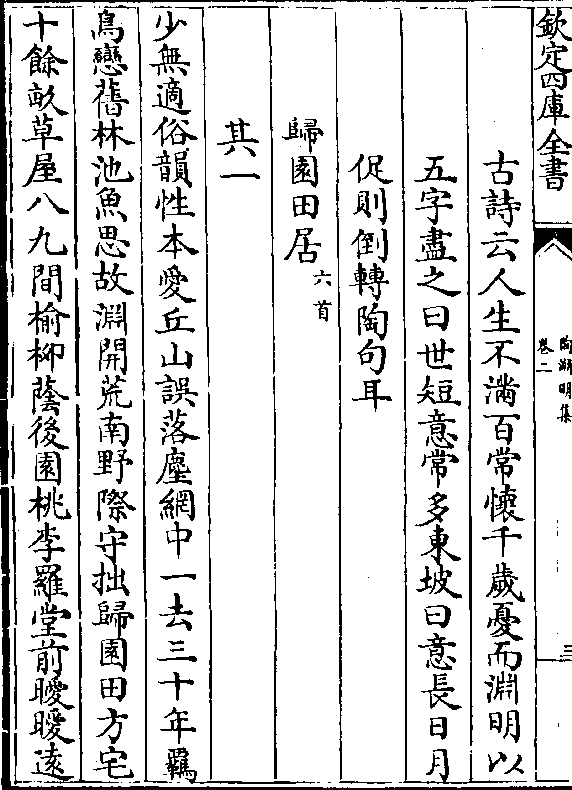 欽定四庫全書
陶淵明集
卷二
三
古詩云人生不滿百常懷千歲憂而淵明以
五字盡之曰世短意常多東坡曰意長日月
促則倒轉陶句耳
歸園田居六首
其一
少無適俗韻性本愛丘山誤落塵網中一去三十年羈
鳥戀舊林池魚思故淵開荒南野際守拙歸園田方宅
十餘畝草屋八九間榆柳蔭後園桃李羅堂前曖曖遠